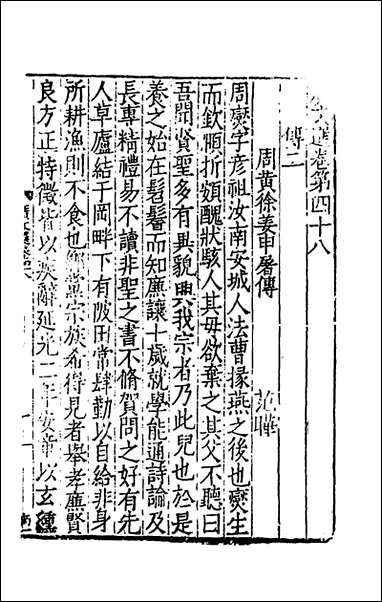 文選卷第四十八
傳二
周黃徐姜申屠傳
范曄
周燮字彥祖汝南安城人法曹掾燕之後也燮生
而欽頤折頞醜狀駭人其母欲棄之其父不聽曰
吾聞賢聖多有異貌興我宗者乃此兒也於是
養之始在髫鬌而知廉讓十歲就學能通詩論及
長專精禮易不讀非聖之書不脩賀問之好有先
人草廬結于岡畔下有陂田常肆勤以自給非身
所耕漁則不食也鄉黨宗族希得見者舉孝廉賢
良方正特徵皆以疾辭延光二年安帝以玄纁